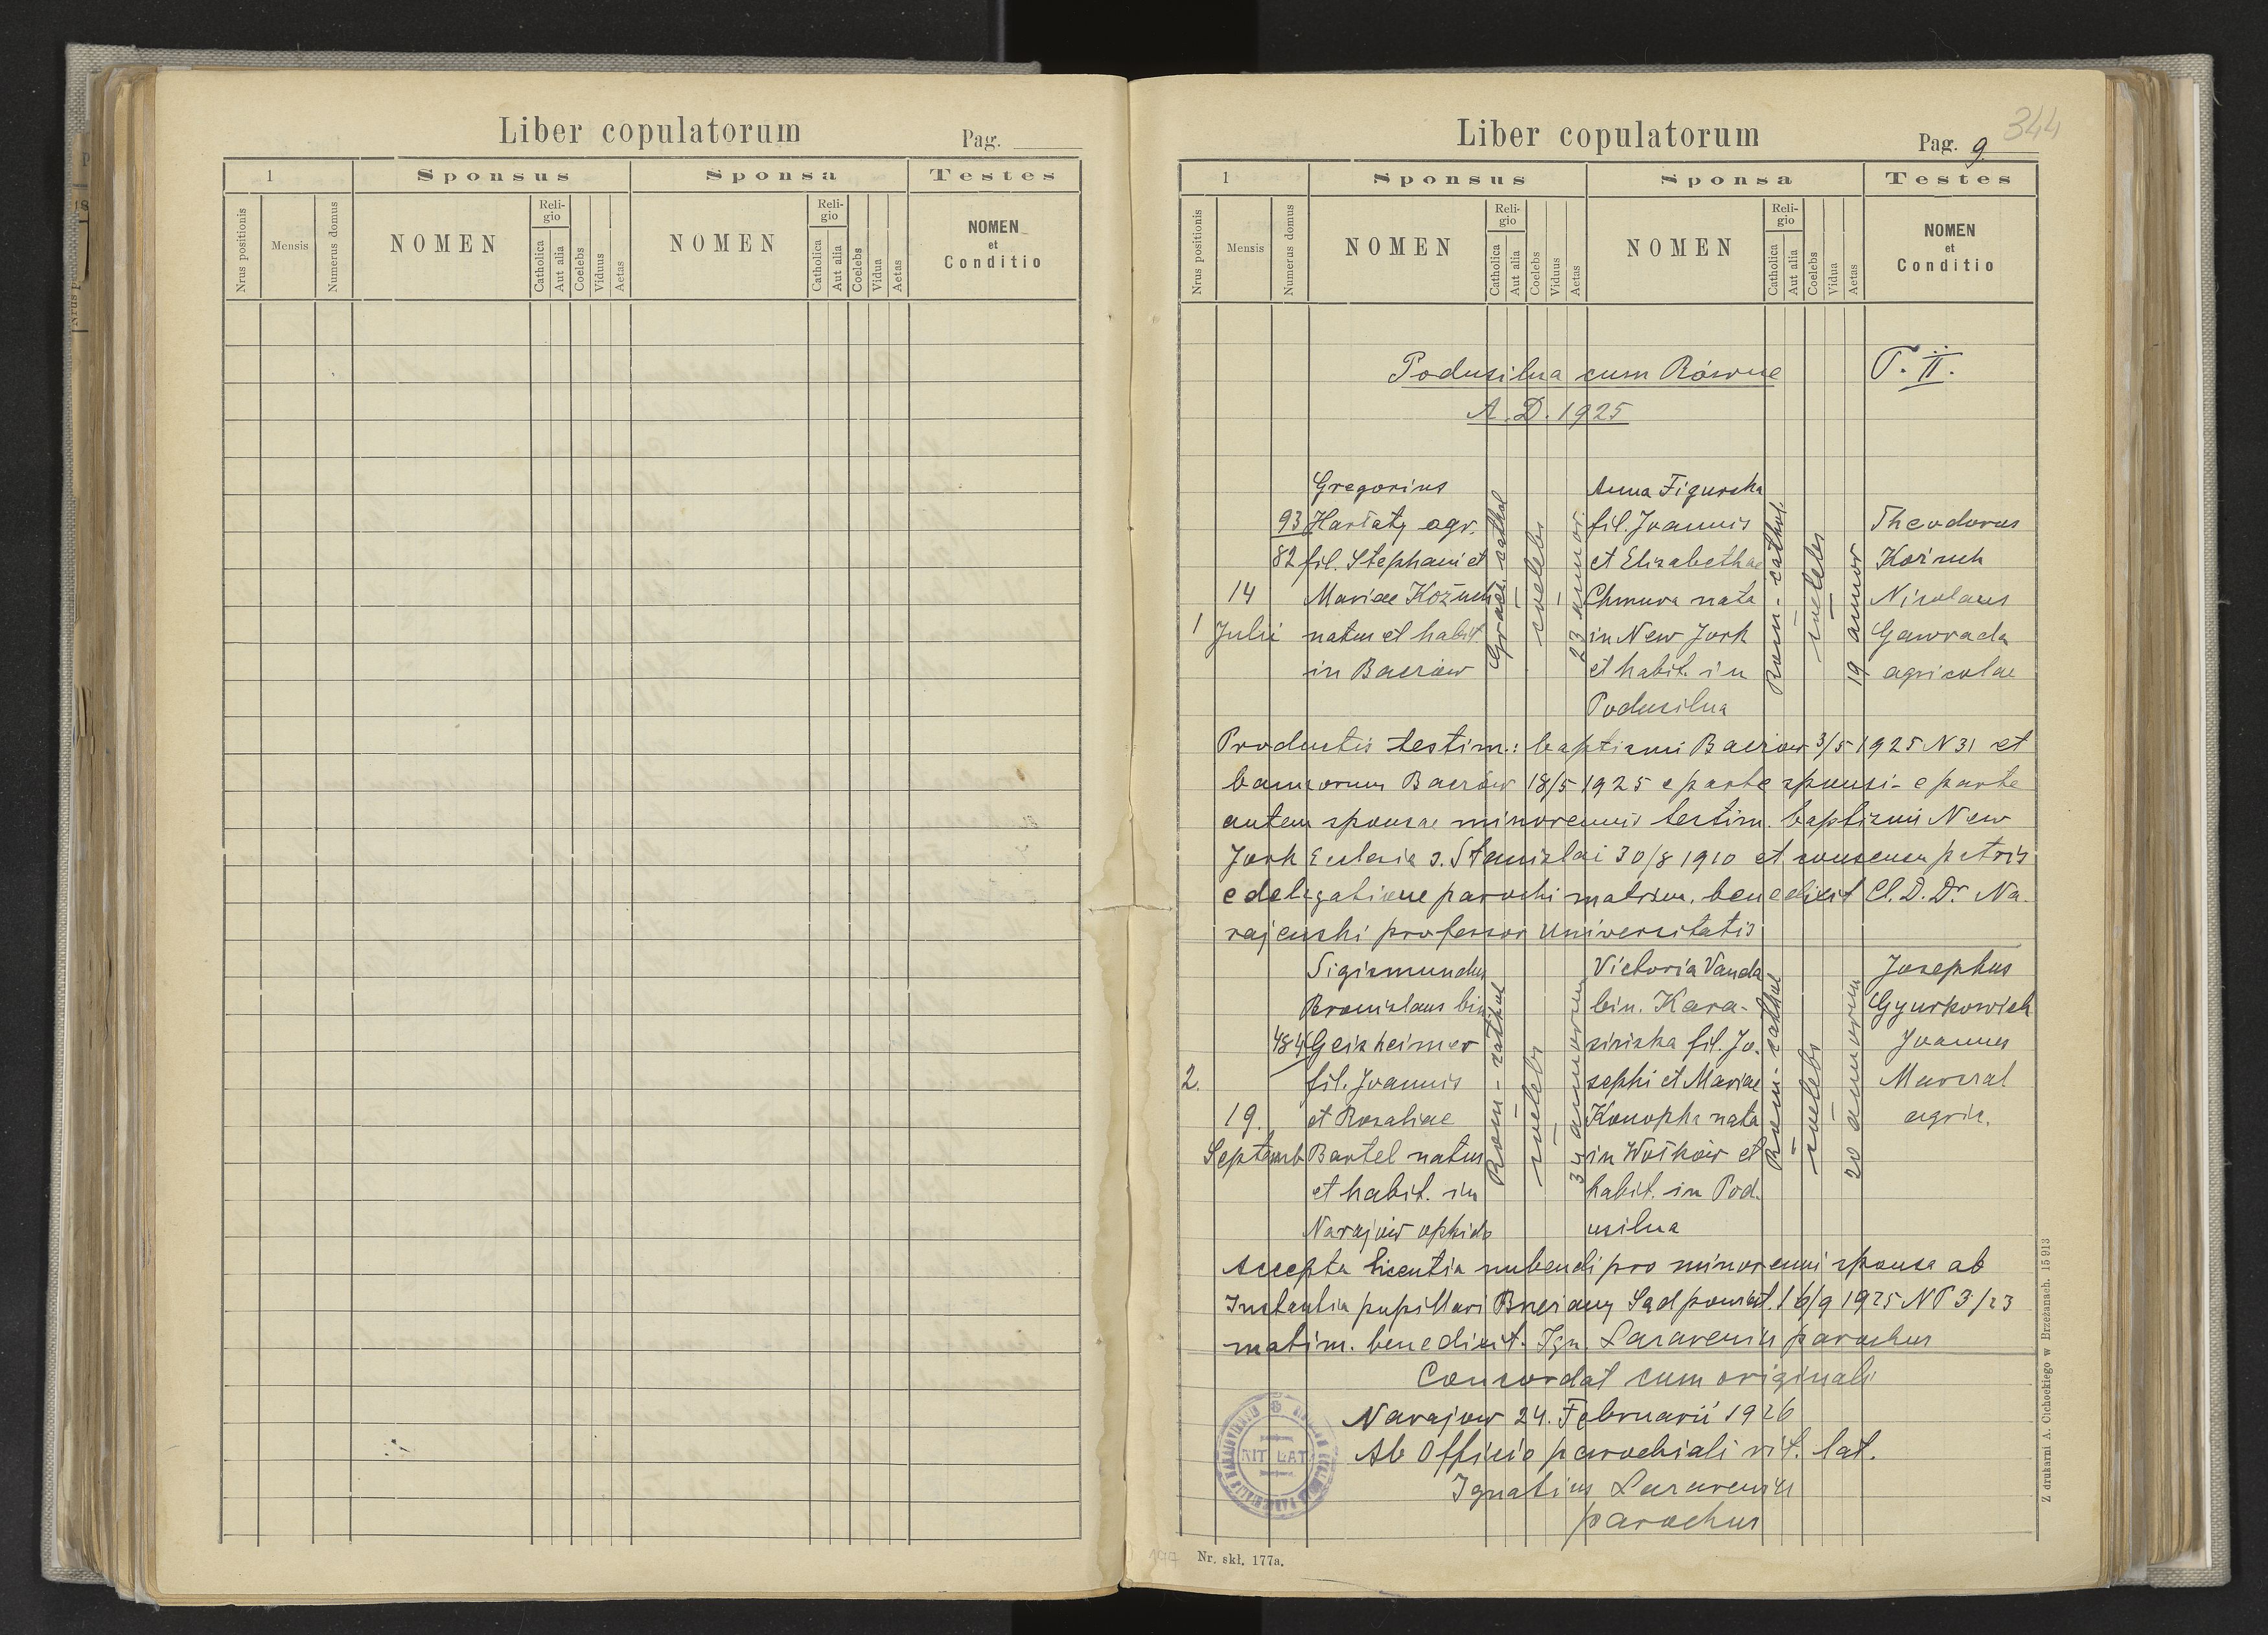 Liber copulatorum
Pag.
1
Sponsus
Sponsa
Testes
Nrus positionis
Mensis
Numerus domus
NOMEN
Reli-
gio
Catholica
Aut alia
Coelebs
Viduus
Aetas
NOMEN
Reli-
gio
Catholica
Aut alia
Coelebs
Vidua
Aetas
NOMEN
et
Conditio
344
Liber copulatorum
Pag. 9
1
Sponsus
Sponsa
Testes
Nrus positionis
Mensis
Numerus domus
NOMEN
Reli-
gio
Catholica
Aut alia
Coelebs
Viduus
Aetas
NOMEN
Reli-
gio
Catholica
Aut alia
Coelebs
Vidua
Aetas
NOMEN
et
Conditio
Podusilna cum Równe
T. II.
A. D. 1925
1
14
Julii
93
82
Gregorius
Harłaty agr.
fil. Stephani et
Mariae Kożuch
natus et habit.
in Baerów
Graeci cathol
coelebs
23 annor.
Anna Figurska
fil. Joannis
et Elisabethae
Chmura nata
in New Jork
et habit. in
Podusilna
Rom-cathol.
coelebs
19 annor
Theodorus
Kożuch
Nicolaus
Gawrada
agricolae
Productis testim.: baptismi Baerów 3/5 1925 N 31 et
bannorum Baerów 18/5 1925 e parte sponsi - e parte
autem sponsae minorennis testim. baptismi New
Jork Eclesia s. Stanislai 30/8 1910 et consensu patris
e delegatione parochi matrim. benedixit Cl. D. Dr. Na-
rajewski professor Universitatis
2.
19.
Septemb
484
Sigismundus
Bronislaus bin
Geisheimer
fil. Joannis
et Rosaliae
Bartel natus
et habit. in
Narajów oppido
Rom-cathol
coelebs
34 annorum
Victoria Vanda
bin. Kara-
sinska fil. Jo-
sephi et Mariae
Konopka nata
in Wołków et
habit. in Pod-
usilna
Rom-cathol
coelebs
20 annorum
Josephus
Gyurkowich
Joannes
Marszal
agric.
Accepta licentia nubendi pro minorenni sponsa ab
Instantia pupillari Brzeżany Sąd powiat. 16/9 1925 N P 3/23
matim. benedixit. Ign. Lazarewicz parochus
Concordat cum originali
Narajow 24. Februarii 1926
Ab Officio parochiali rit. lat.
Ignatius Lazarewicz
parochus
RIT. LAT.
Nr. skł. 177a.
Z drukarni A. Cichockiego w Brzeżanach. 15913